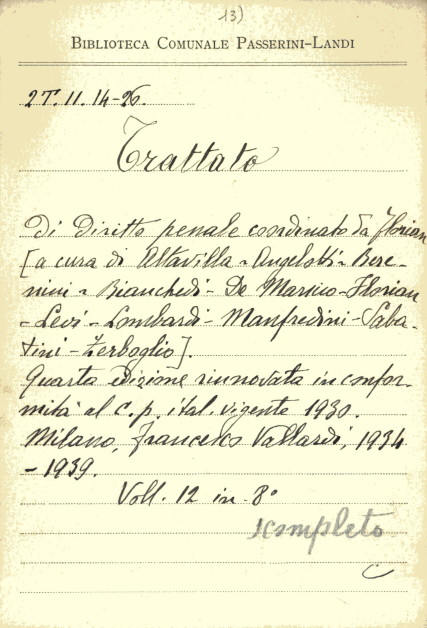 13)
BIBLIOTECA COMUNALE PASSERINI-LANDI
2T. 11. 14-26.
Trattato
di diritto penale coordinato da Florian
[a cura di Altavilla - Angelotti - Bere-
nini - Bianchedi - De Marsico - Florian
- Levi - Lombardi - Manfredini - Saba-
tini - Zerboglio].
Quarta edizione rinnovata in confor-
mità al c. p. ital. vigente 1930.
Milano, Francesco Vallardi, 1934
- 1939.
Voll. 12 in 8°
completo